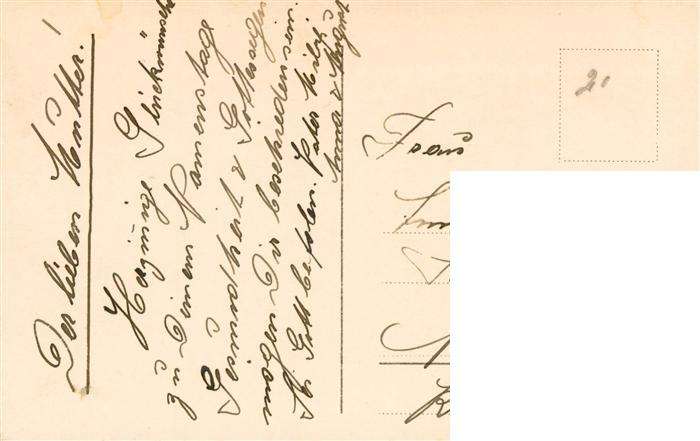 Der lieben Mutter!
Herzinnige Glückwünsche
zu Deinem Namenstage
Gesundheit & Gottessegen
mögen Dir beschieden sein
Sei Gott befohlen. Vater
Anna &
Frau